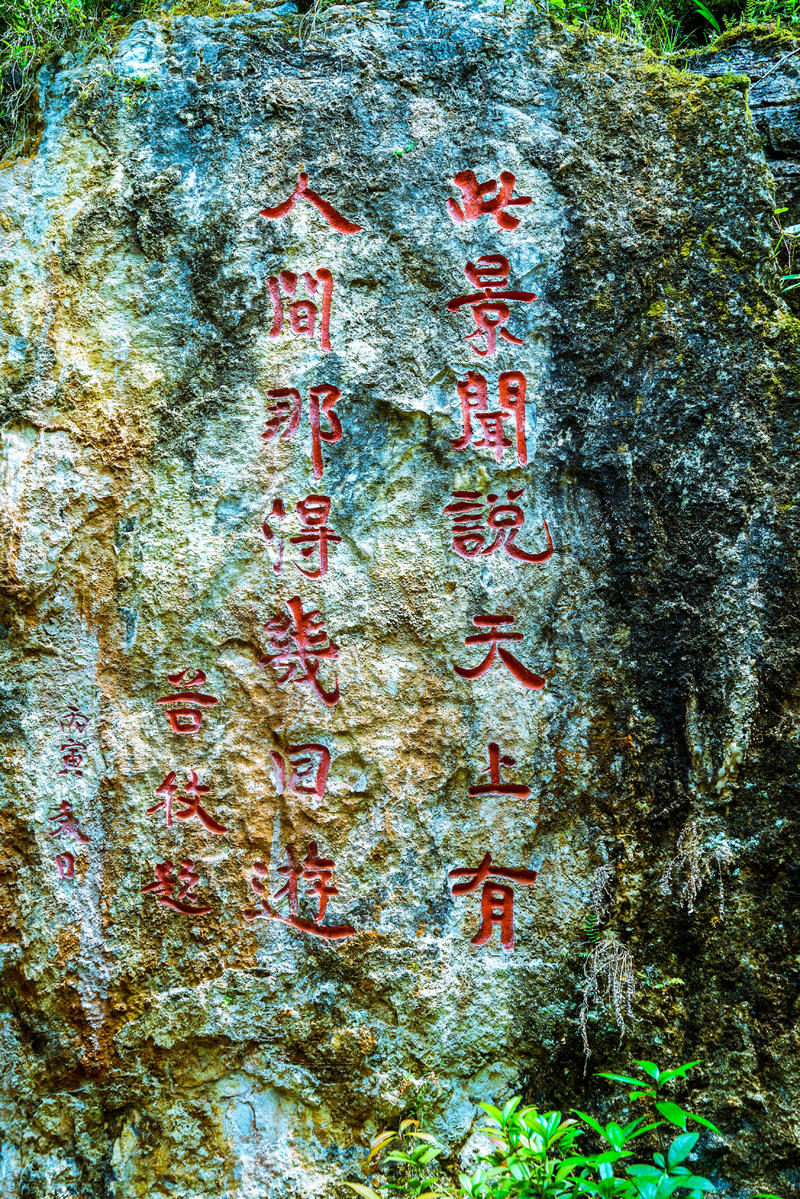 此景聞說天上有
人間那得幾回遊
題
丙寅春